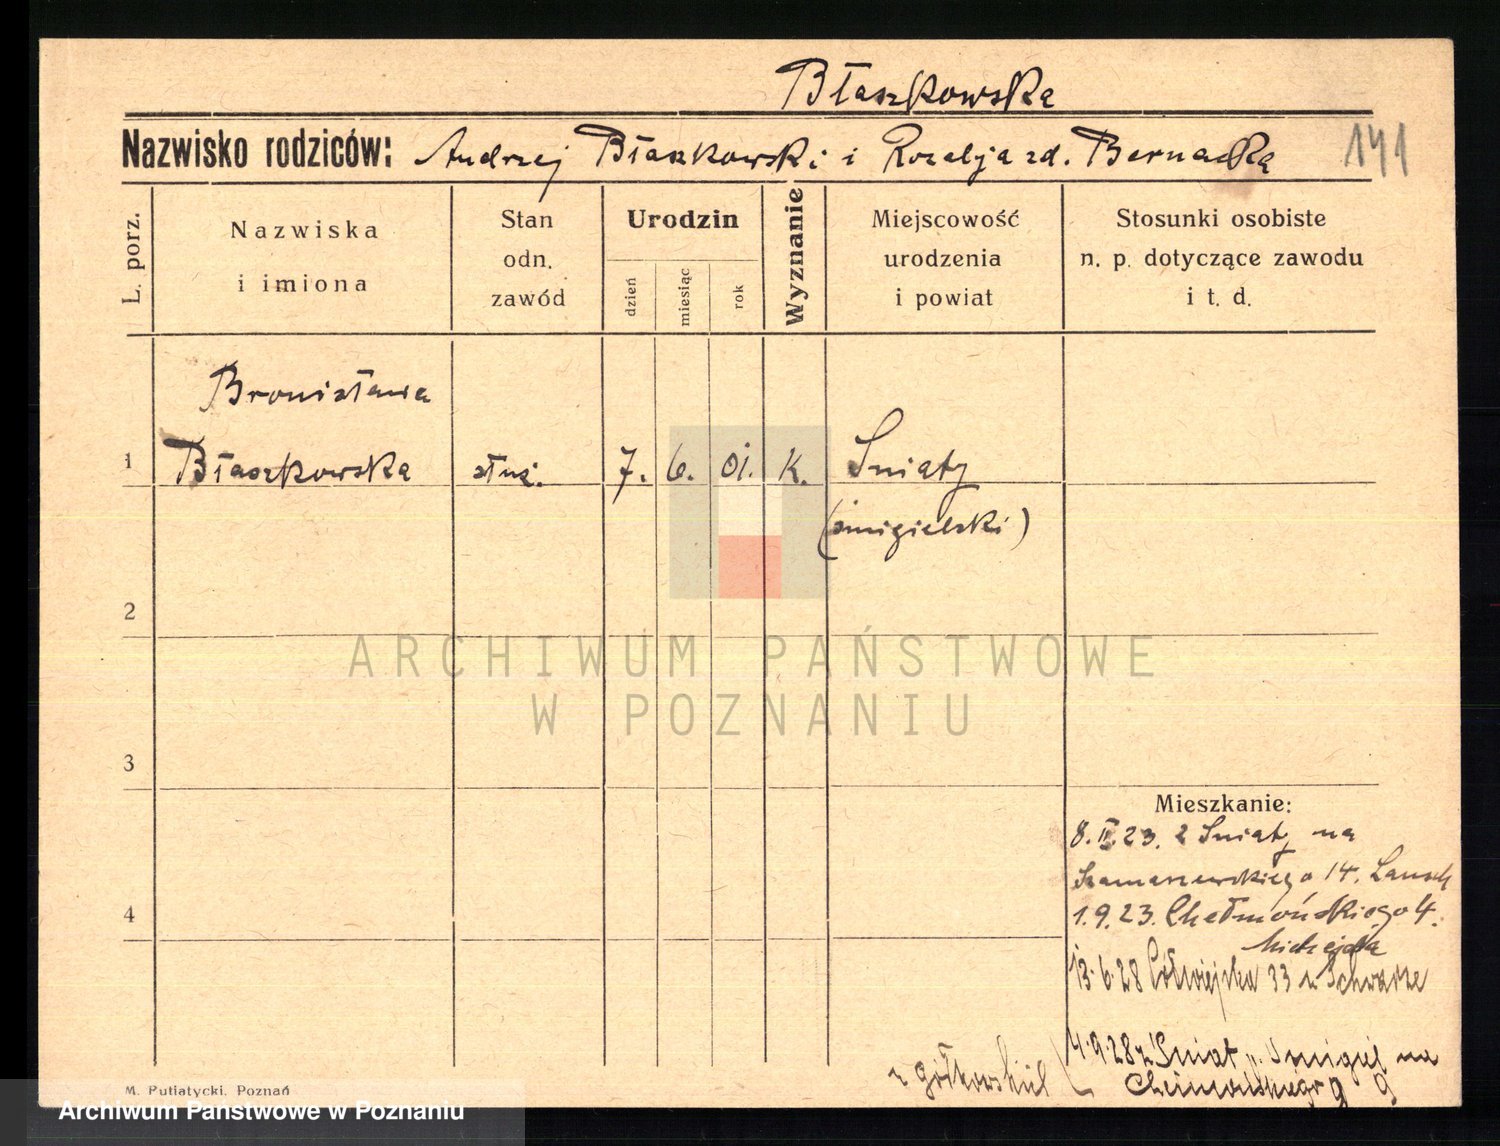 Błaszkowska
Nazwisko rodziców: Andrzej Błaszkowski i Rozalja zd. Bernacka
141
L. porz.
Nazwiska
i imiona
Stan
odn.
zawód
Urodzin
dzień
miesiąc
rok
Wyznanie
Miejscowość
urodzenia
i powiat
Stosunki osobiste
n. p. dotyczące zawodu
i t. d.
Bronisława
1 Błaszkowska służ. 7. 6. 01. k. Śniaty
(śmigielski)
2
ARCHIWUM PAŃSTWOWE
W POZNANIU
3
Mieszkanie:
8. II. 23. z Śniaty na
Szamarzewskiego 14.
1.9.23. Chełmońskiego 4.
4
13.6.28 Półwiejska 33 u Schwarze
4.9.28 z Śniat Śmigiel na
Chełmońskiego 9
M. Putiatycki, Poznań
Archiwum Państwowe w Poznaniu